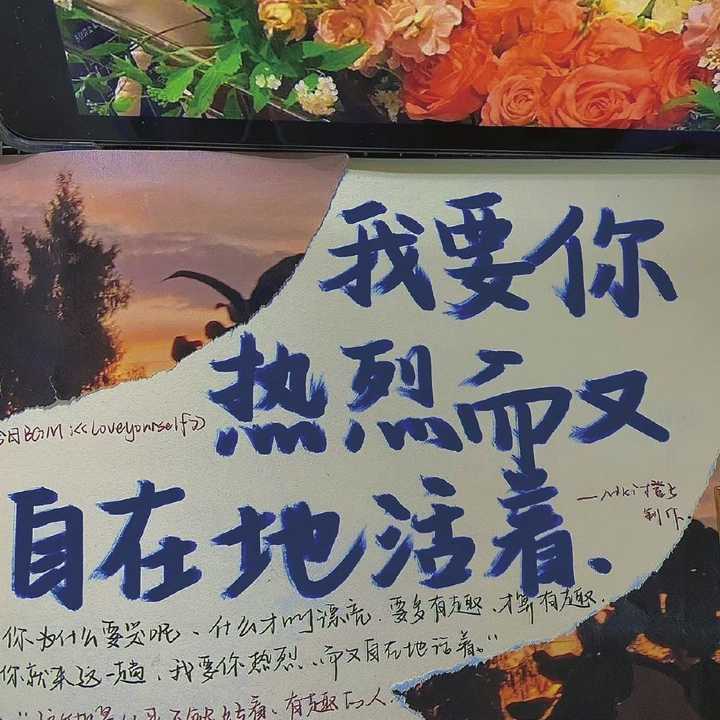 我要你
热烈而又
今日BGM:《Loveyourself》
自在地活着.
制作.
你为什么要哭呢、什么才叫漂亮.要多有趣、才算有趣.
你就来这一趟,我要你热烈.而又自在地活着。”
活着、有趣的人.